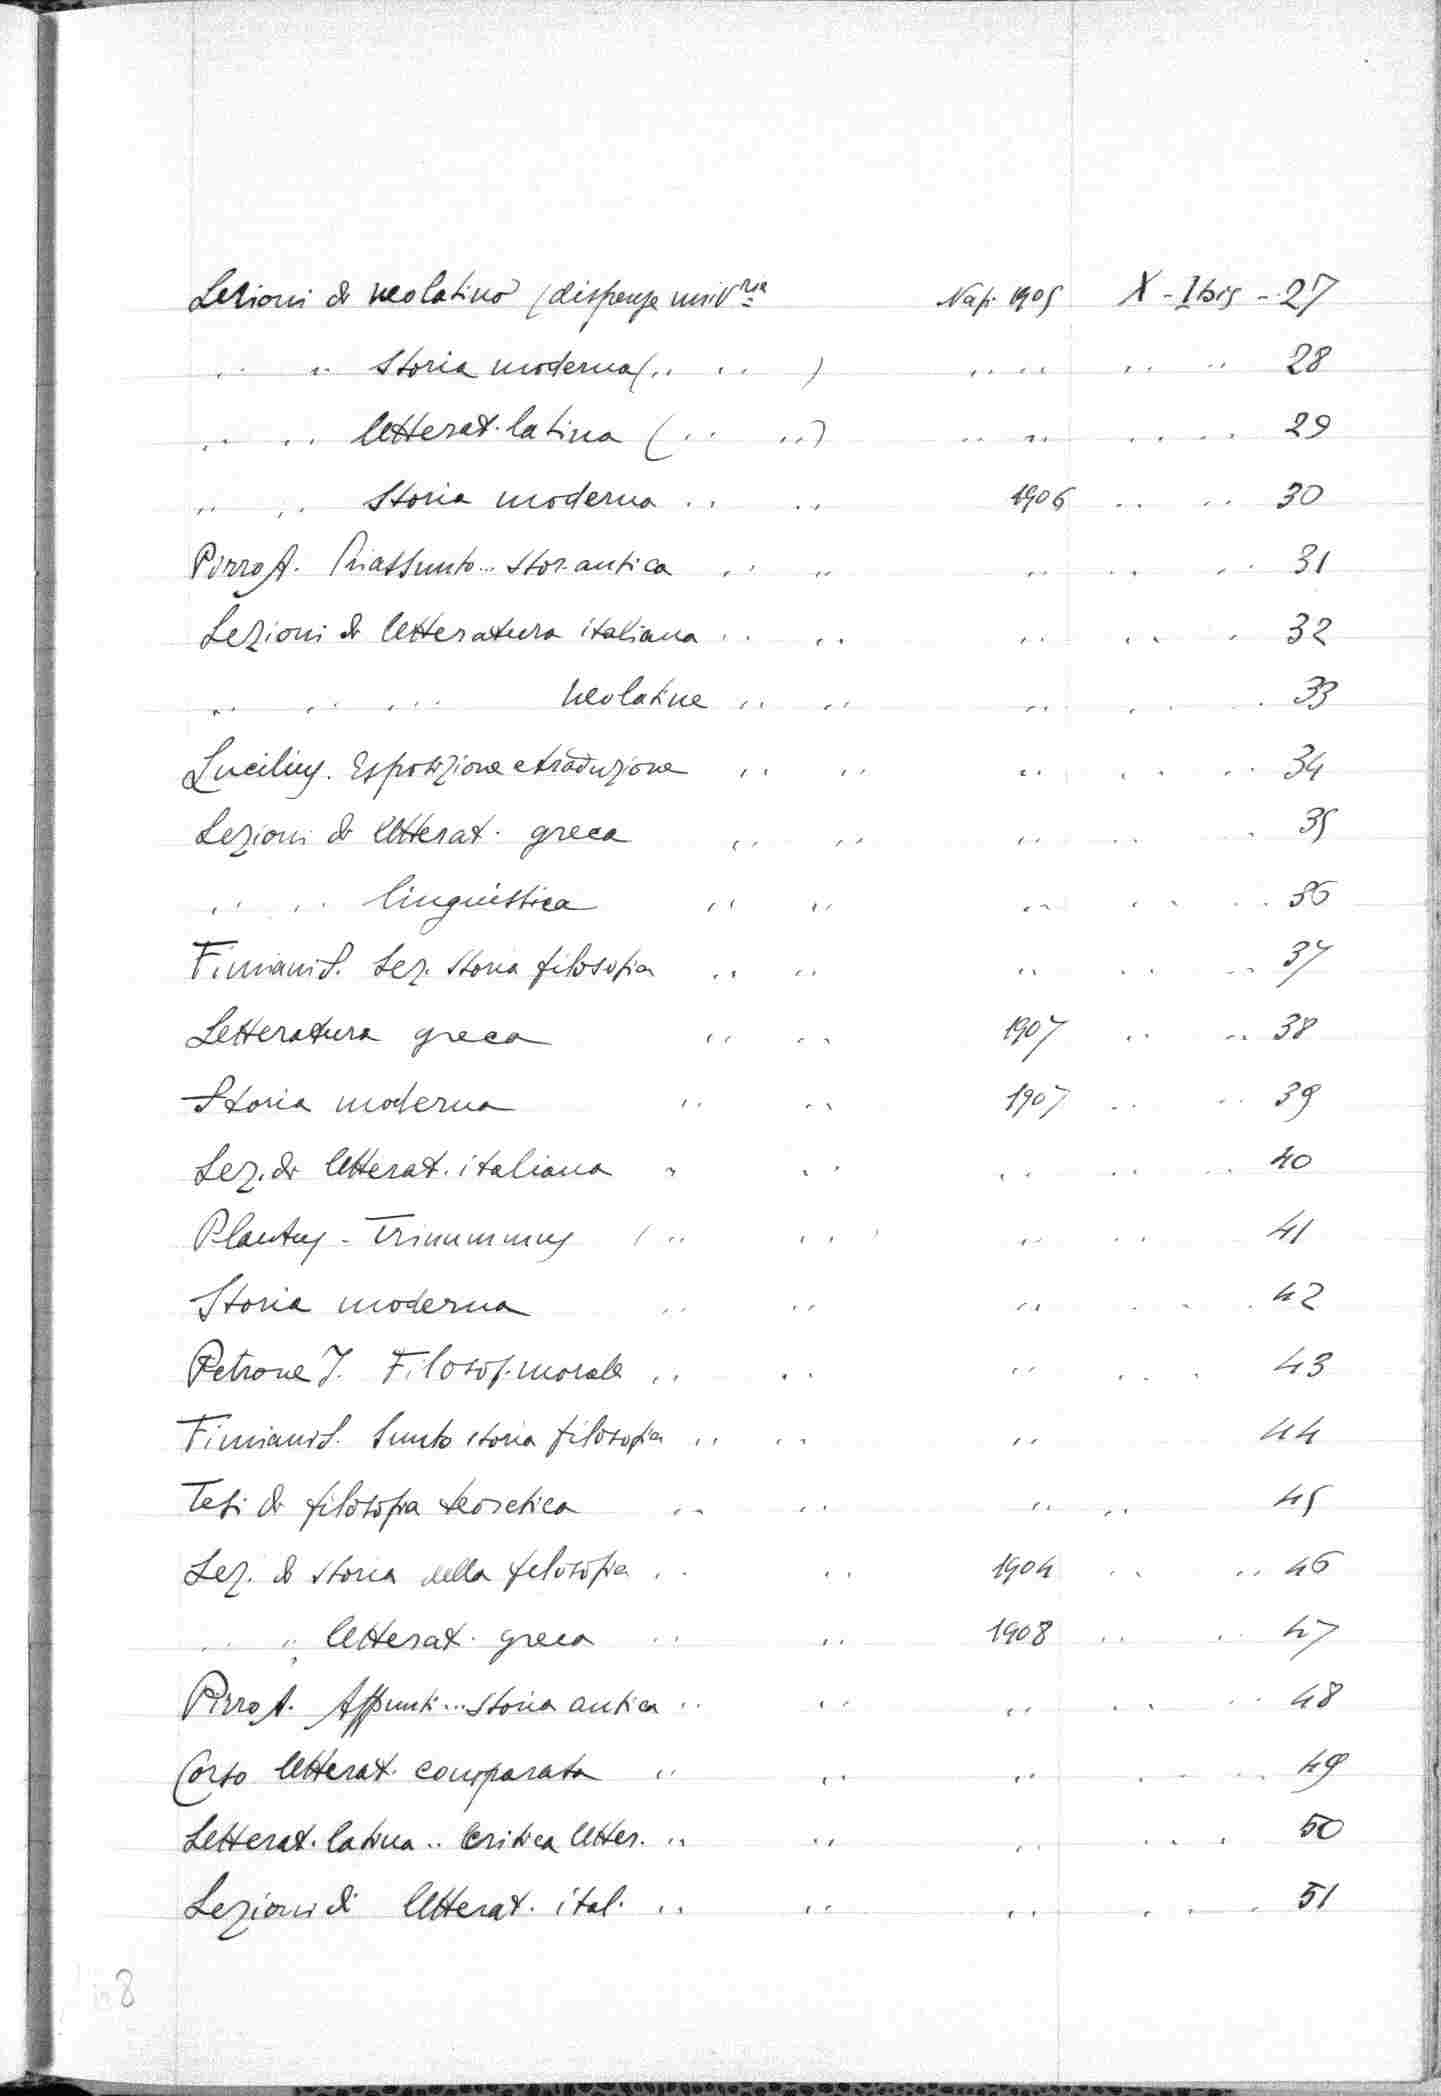 Lezioni di neolatino (dispense univ.ria Nap. 1905 X - I bis - 27
" " Storia moderna (" " ) " " " " 28
" " letterat. latina (" ") " " " " 29
" " Storia moderna " " 1906 " " 30
Pirro A. Riassunto... stor. antica " " " " " 31
Lezioni di letteratura italiana " " " " " 32
" " " neolatine " " " " " 33
Lucilius. Esposizione e traduzione " " " " " 34
Lezioni di letterat. greca " " " " " 35
" " linguistica " " " " " 36
Fimiani S. Lez. storia filosofia " " " " " 37
Letteratura greca " " 1907 " " 38
Storia moderna " " 1907 " " 39
Lez. di letterat. italiana " " " " " 40
Plautus - Trinummus ( " " " " 41
Storia moderna " " " " " 42
Petrone I. Filosof. morale " " " " " 43
Fimiani S. Sunto storia filosofia " " " 44
Tesi di filosofia teoretica " " " " 45
Lez. di storia della filosofia " " 1904 " " 46
" " letterat. greca " " 1908 " " 47
Pirro A. Appunti... Storia antica " " " " " 48
Corso letterat. comparata " " " " " 49
Letterat. latina .. Critica letter. " " " " " 50
Lezioni di letterat. ital. " " " " " 51
8